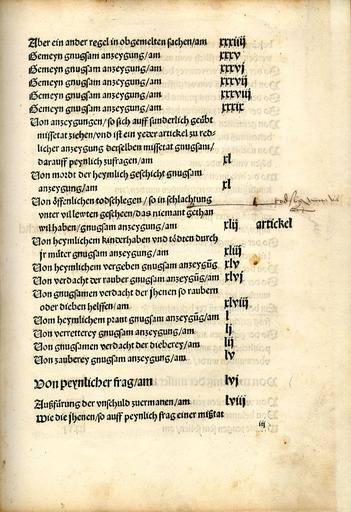 Aber ein ander regel in obgemelten sachen/am xxxiiij
Gemeyn gnugsam anzeygung/am xxxv
Gemeyn gnugsam anzeygung/am xxxvj
Gemeyn gnugsam anzeygung/am xxxvij
Gemeyn gnugsam anzeygung/am xxxviij
Gemeyn gnugsam anzeygung/am xxxix
Von anzeygungen/so sich auff sunderlich geübt
missetat ziehen/vnd ist ein yeder artickel zu red-
licher anzeygung derselben missetat gnugsam/
darauff peynlich zufragen/am xl
Von mordt der heymlich geschicht gnugsam
anzeygung/am xl
Von öffentlichen todschlegen/so in schlachtung
vnter vil lewten gescheen/das niemant gethan
wil haben/gnugsam anzeygung/am xlij artickel
Von heymlichem kinderhaben vnd tödten durch
jr müter gnugsam anzeygung/am xliij
Von heymlichem vergeben gnugsam anzeygūg xlv
Von verdacht der rauber gnugsam anzeygūg/am xlvj
Von gnugsamen verdacht der jhenen so raubern
oder dieben helffen/am xlviij
Vom heymlichem prant gnugsam anzeygūg/am l
Von verretterey gnugsam anzeygung/am lj
Von gnugsamen verdacht der dieberey/am lij
Von zauberey gnugsam anzeygung/am lv
Von peynlicher frag/am lvj
Außfürung der vnschuld zuermanen/am lviij
Wie die jhenen/so auff peynlich frag einer mißtat
iij